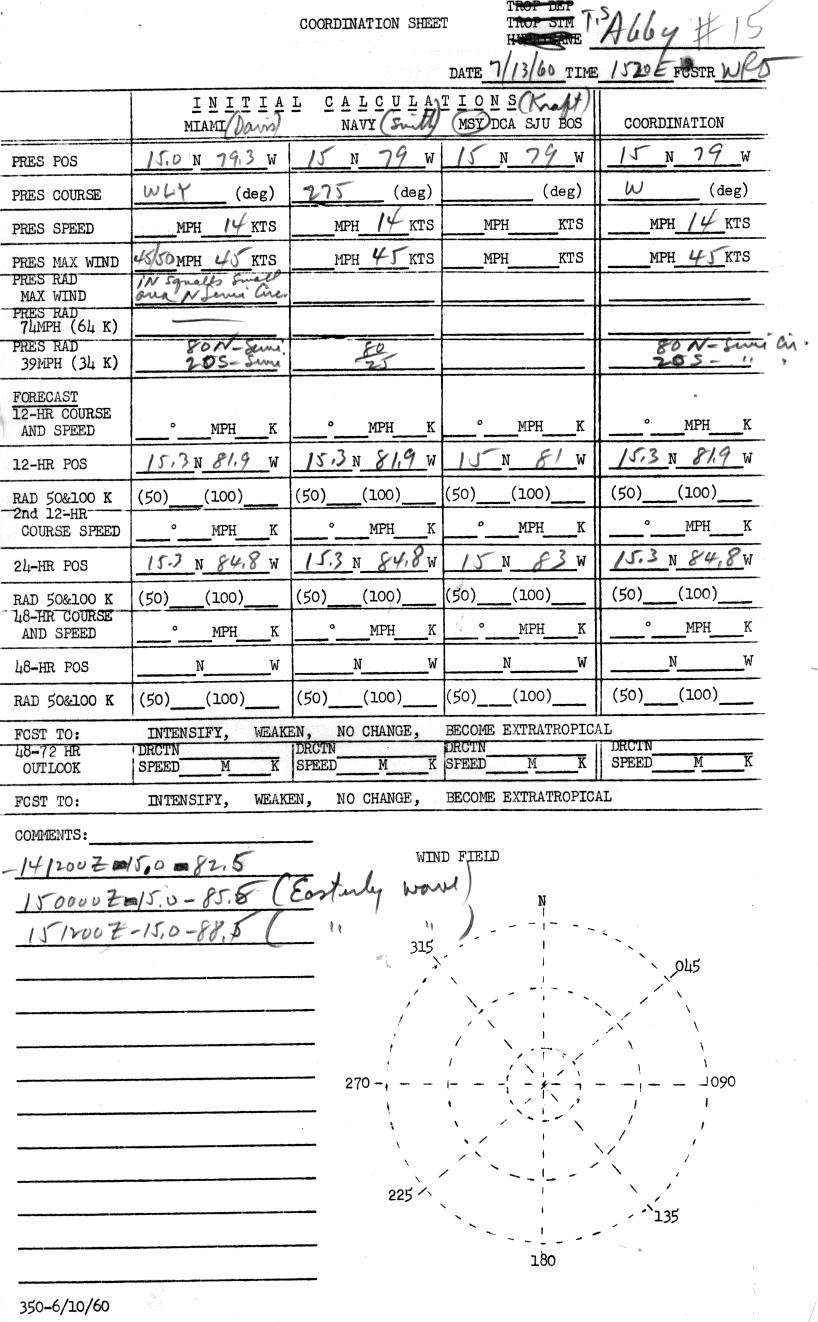 TROP DEP
COORDINATION SHEET TROP STM T.S Abby # 15
HURRICANE
DATE 7/13/60 TIME 1520E FCSTR WRD
INITIAL CALCULATIONS (Kraft)
MIAMI (Davis) NAVY (Smith) MSY DCA SJU BOS COORDINATION
PRES POS 15.0 N 79.3 W 15 N 79 W 15 N 79 W 15 N 79 W
PRES COURSE WLY (deg) 275 (deg) (deg) W (deg)
PRES SPEED MPH 14 KTS MPH 14 KTS MPH KTS MPH 14 KTS
PRES MAX WIND 45/50 MPH 45 KTS MPH 45 KTS MPH KTS MPH 45 KTS
PRES RAD IN Squalls Small
MAX WIND area N Semi Circ
PRES RAD
74MPH (64 K)
PRES RAD 80 N-Semi. 80 80 N-Semi Cir.
39MPH (34 K) 20 S-Semi 25 20 S- " "
FORECAST
12-HR COURSE
AND SPEED ° MPH K ° MPH K ° MPH K ° MPH K
12-HR POS 15.3 N 81.9 W 15.3 N 81.9 W 15 N 81 W 15.3 N 81.9 W
RAD 50&100 K (50) (100) (50) (100) (50) (100) (50) (100)
2nd 12-HR
COURSE SPEED ° MPH K ° MPH K ° MPH K ° MPH K
24-HR POS 15.3 N 84.8 W 15.3 N 84.8 W 15 N 83 W 15.3 N 84.8 W
RAD 50&100 K (50) (100) (50) (100) (50) (100) (50) (100)
48-HR COURSE
AND SPEED ° MPH K ° MPH K ° MPH K ° MPH K
48-HR POS N W N W N W N W
RAD 50&100 K (50) (100) (50) (100) (50) (100) (50) (100)
FCST TO: INTENSIFY, WEAKEN, NO CHANGE, BECOME EXTRATROPICAL
48-72 HR DRCTN DRCTN DRCTN DRCTN
OUTLOOK SPEED M K SPEED M K SPEED M K SPEED M K
FCST TO: INTENSIFY, WEAKEN, NO CHANGE, BECOME EXTRATROPICAL
COMMENTS:
-141200Z-15.0-82.5
150000Z-15.0-85.5 (Easterly wave)
151200Z-15.0-88.5 ( " " )
WIND FIELD
N
315
045
270
090
225
135
180
350-6/10/60